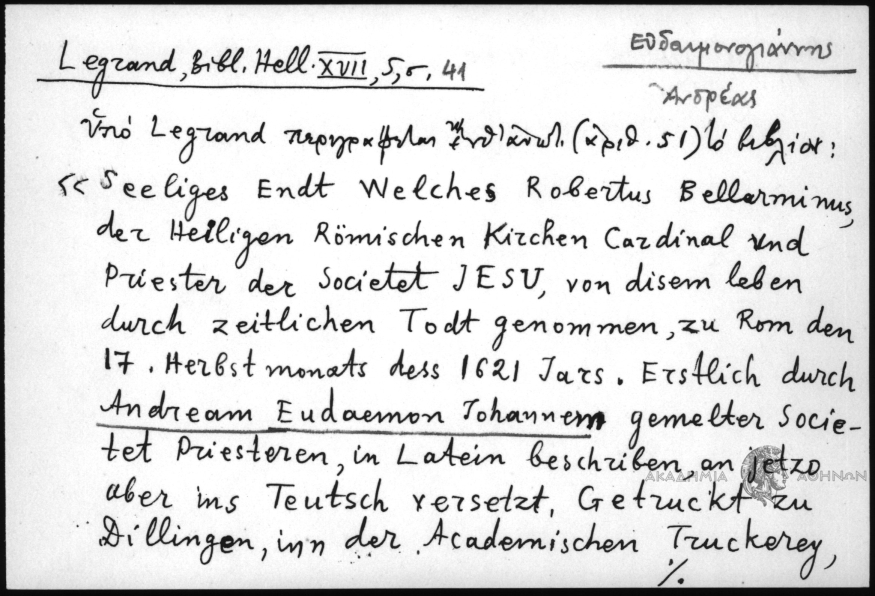 Ευδαιμονογιάννης
Legrand, Bibl. Hell. XVII, 5, σ. 41
Ἀνδρέας
Ὑπό Legrand περιγράφεται (ἀριθ. 51) τό βιβλίον:
« Seeliges Endt Welches Robertus Bellarminus,
der Heiligen Römischen Kirchen Cardinal vnd
Priester der Societet JESU, von disem leben
durch zeitlichen Todt genommen, zu Rom den
17. Herbstmonats dess 1621 Jars. Erstlich durch
Andream Eudaemon Johannem gemelter Socie-
tet Priesteren, in Latein beschriben, an jetzo
aber ins Teutsch versetzt. Getruckt zu
Dillingen, inn der Academischen Truckerey,
./.
ΑΚΑΔΗΜΙΑ ΑΘΗΝΩΝ